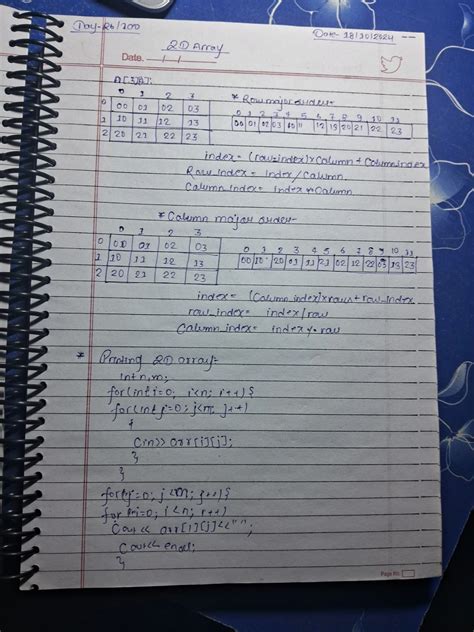 Day-26/200
Date- 18/10/2024
Date. __/__/__
2D Array
A[3][4];
0 1 2 3
0 00 01 02 03
1 10 11 12 13
2 20 21 22 23
* Row major order-
0 1 2 3 4 5 6 7 8 9 10 11
00 01 02 03 10 11 12 13 20 21 22 23
index = (row-index)×Column + Column index
Row_index = Index/Column.
Column_index = Index % Column
* Column major order-
0 1 2 3
0 00 01 02 03
1 10 11 12 13
2 20 21 22 23
0 1 2 3 4 5 6 7 8 9 10 11
00 10 20 01 11 21 02 12 22 03 13 23
index = (Column_index)×rows + row_index
row_index = index/row
Column_index = index % row
* Printing 2D array-
int n,m;
for(int i=0; i<n; i++){
for(int j=0; j<m; j++)
{
Cin>> arr[i][j];
}
}
for(j=0; j<m; j++){
for(i=0; i<n; i++)
Cout<< arr[i][j]<<" ";
Cout<< endl;
}
Page No.